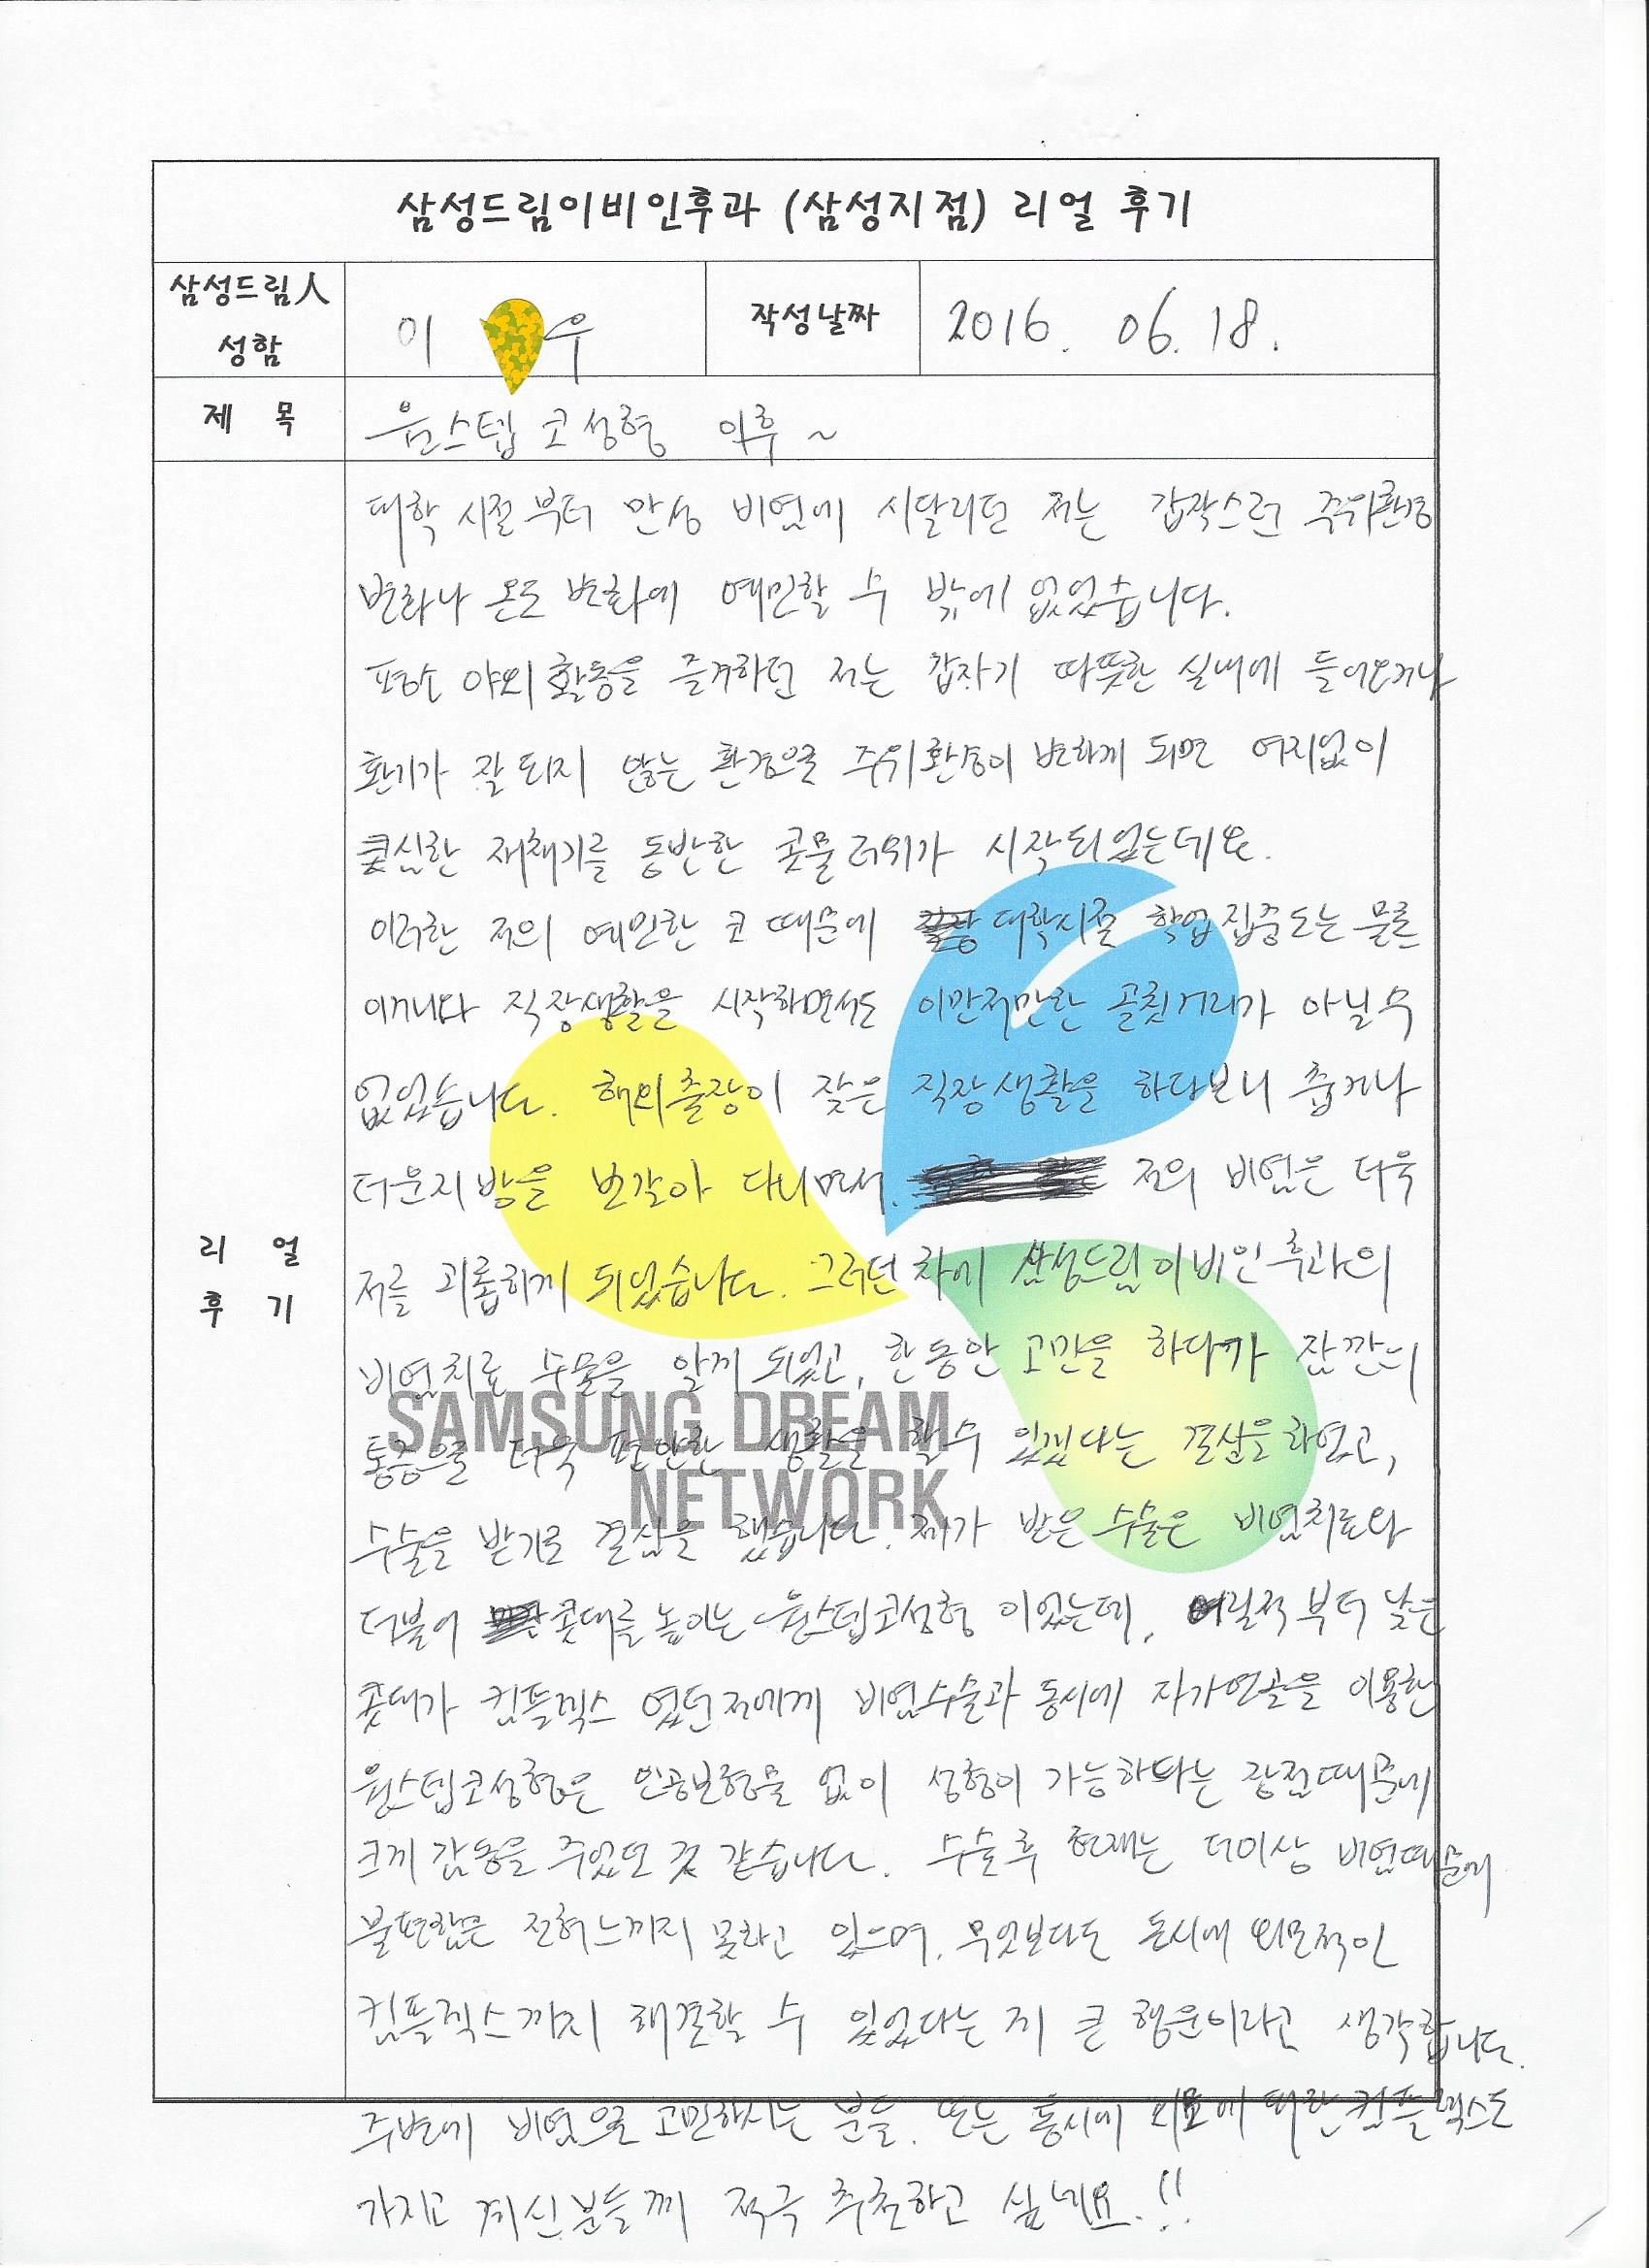 삼성드림이비인후과 (삼성지점) 리얼 후기
삼성드림人 성함
이 우
작성날짜
2016. 06. 18.
제 목
원스텝 코성형 이후 ~
리 얼
후 기
대학 시절 부터 만성 비염에 시달리던 저는 갑작스런 주위환경
변화나 온도 변화에 예민할 수 밖에 없었습니다.
평소 야외 활동을 즐겨하던 저는 갑자기 따뜻한 실내에 들어오거나
환기가 잘 되지 않는 환경으로 주위환경이 변하게 되면 여지없이
심한 재채기를 동반한 콧물 러쉬가 시작되었는데요.
이러한 저의 예민한 코 때문에 대학시절 학업 집중도는 물론
이거니와 직장생활을 시작하면서도 이만저만한 골칫거리가 아닐수
없었습니다. 해외출장이 잦은 직장생활을 하다보니 춥거나
더운지방을 번갈아 다니면서. 저의 비염은 더욱
저를 괴롭히게 되었습니다. 그러던 차에 삼성드림이비인후과의
비염치료 수술을 알게 되었고, 한동안 고민을 하다가 잠깐의
통증으로 더욱 편안한 생활을 할수 있겠다는 결심을 하였고,
SAMSUNG DREAM
NETWORK
수술을 받기로 결심을 했습니다. 제가 받은 수술은 비염치료와
더불어 콧대를 높이는 원스텝코성형 이었는데, 어릴적 부터 낮은
콧대가 컴플렉스 였던 저에게 비염수술과 동시에 자가연골을 이용한
원스텝코성형은 인공보형물 없이 성형이 가능하다는 장점때문에
크게 감동을 주었던 것 같습니다. 수술후 현재는 더이상 비염때문에
불편함은 전혀느끼지 못하고 있으며, 무엇보다도 동시에 외모적인
컴플렉스까지 해결할 수 있었다는 게 큰 행운이라고 생각합니다.
주변에 비염으로 고민하시는 분들. 또는 동시에 외모에 대한 컴플렉스도
가지고 계신 분들께 적극 추천하고 싶네요.!!